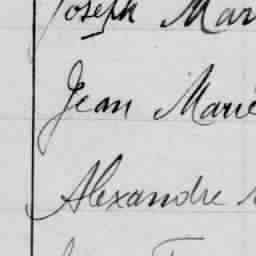 Joseph Mar
Jean Marie
Alexandre